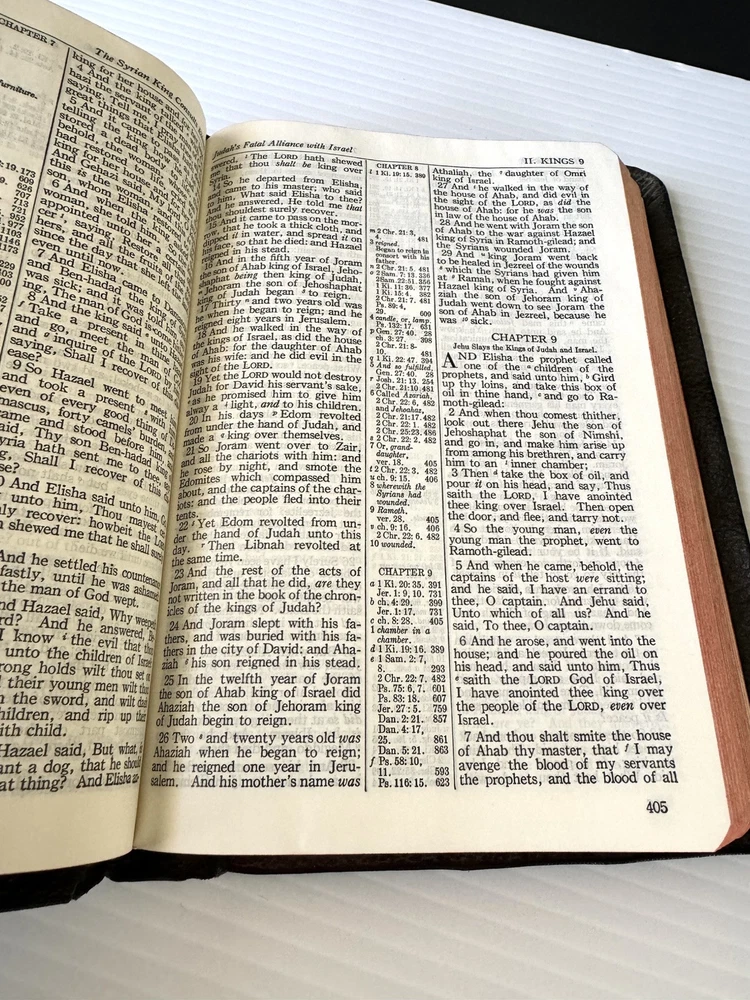 CHAPTER 7
The Syrian King
furniture.
king for her house and
4 And the king
hazi the servant of the
saying, Tell me,
great things that
5 And it came to pass,
telling the
stored a dead body
behold, the woman,
had restored to
king for her house and
And Gehazi said, My
son, whom Elisha
6 And when the king
woman, she told him.
appointed unto her a
cer, saying,
hers, and all the fruits
since the day that she left
even until now.
7 And Elisha
and Ben-hadad
was sick; and it was told
ing, The man of God is
8 And the king said unto
Take a present in thine
and go, meet the man
and enquire of the LORD
saying, Shall I recover
ease?
9 So Hazael went to meet
and took a present with
even of every good thing of
mascus, forty camels' burden,
came and stood before him,
said, Thy son Ben-hadad king
yria hath sent me to thee,
g, Shall I recover of this
se?
0 And Elisha said unto him, Go,
unto him, Thou mayest
ly recover: howbeit the LORD
shewed me that he shall surely
And he settled his countenance
fastly, until he was ashamed:
the man of God wept.
nd Hazael said, Why weepeth
rd? And he answered, Be-
I know the evil that thou
unto the children of Israel:
rong holds wilt thou set on
their young men wilt thou
h the sword, and wilt dash
hildren, and rip up their
ith child.
Hazael said, But what, is
ant a dog, that he should
at thing? And Elisha an-
Judah's Fatal Alliance with Israel
II. KINGS 9
The LORD hath shewed
that thou shalt be king over
yria.
14 So he departed from Elisha,
came to his master; who said
him, What said Elisha to thee?
he answered, He told me that
shouldest surely recover.
15 And it came to pass on the mor-
that he took a thick cloth, and
dipped it in water, and spread it on
face, so that he died: and Hazael
reigned in his stead.
16 And in the fifth year of Joram
the son of Ahab king of Israel, Jeho-
shaphat being then king of Judah,
Jehoram the son of Jehoshaphat
king of Judah began 3 to reign.
17 Thirty n and two years old was
he when he began to reign; and he
reigned eight years in Jerusalem.
18 And he walked in the way of
the kings of Israel, as did the house
of Ahab: for the daughter of Ahab
was his wife: and he did evil in the
sight of the LORD.
19 Yet the LORD would not destroy
Judah for David his servant's sake,
as he promised him to give him
alway a 4 light, and to his children.
20 In his days p Edom revolted
from under the hand of Judah, and
made a q king over themselves.
21 So Joram went over to Zair,
and all the chariots with him: and
he rose by night, and smote the
Edomites which compassed him
about, and the captains of the char-
iots: and the people fled into their
tents.
22 5 Yet Edom revolted from un-
der the hand of Judah unto this
day. r Then Libnah revolted at
the same time.
23 And the rest of the acts of
Joram, and all that he did, are they
not written in the book of the chron-
icles of the kings of Judah?
24 And Joram slept with his fa-
thers, and was buried with his fa-
thers in the city of David: and Aha-
ziah 6 his son reigned in his stead.
25 In the twelfth year of Joram
the son of Ahab king of Israel did
Ahaziah the son of Jehoram king
of Judah begin to reign.
26 Two s and twenty years old was
Ahaziah when he began to reign;
and he reigned one year in Jeru-
salem. And his mother's name was
CHAPTER 8
l 1 Ki. 19: 15. 389
m 2 Chr. 21: 3,
4. 481
3 reigned.
Began to reign in
concert with his
father.
n 2 Chr. 21: 5. 481
o 2 Sam. 7: 13. 336
2 Sam. 22:51. 356
1 Ki. 11: 36. 377
1 Ki. 15: 4. 382
2 Chr. 21: 7. 481
Ps. 89: 4,
29. 609
4 candle, or, lamp.
Ps. 132: 17. 631
p Gen. 27: 40. 28
ch. 3: 27. 398
2 Chr. 21: 8-
10. 481
q 1 Ki. 22: 47. 394
5 And so fulfilled,
Gen. 27: 40. 28
r Josh. 21: 13. 254
2 Chr. 21:10. 481
6 Called Azariah,
2 Chr. 22: 6, 482
and Jehoahaz,
2 Chr. 21:17. 482
2 Chr. 22: 1. 482
2 Chr. 25:23. 486
s 2 Chr. 22: 2, 482
7 Or, grand-
daughter,
ver. 18. 405
t 2 Chr. 22: 3, 482
u ch. 9: 15. 406
8 wherewith the
Syrians had
wounded.
9 Ramoth.
ver. 28. 405
v ch. 9: 16. 406
2 Chr. 22: 6. 482
10 wounded.
CHAPTER 9
a 1 Ki. 20: 35. 391
Jer. 1: 9, 10. 731
b ch. 4: 29. 399
Jer. 1: 17. 731
c ch. 8: 28. 405
1 chamber in a
chamber.
d 1 Ki. 19: 16. 389
e 1 Sam. 2: 7,
8. 293
2 Chr. 22: 7. 482
Ps. 75: 6, 7. 601
Ps. 83: 18. 607
Jer. 27: 5. 759
Dan. 2: 21. 857
Dan. 4: 17,
25. 861
Dan. 5: 21. 863
f Ps. 58: 10,
11. 593
Ps. 116: 15. 623
Athaliah, the 7 daughter of Omri
king of Israel.
27 And t he walked in the way of
the house of Ahab, and did evil in
the sight of the LORD, as did the
house of Ahab: for he was the son
in law of the house of Ahab.
28 And he went with Joram the son
of Ahab to the war against Hazael
king of Syria in Ramoth-gilead; and
the Syrians wounded Joram.
29 And u king Joram went back
to be healed in Jezreel of the wounds
8 which the Syrians had given him
at 9 Ramah, when he fought against
Hazael king of Syria. And v Aha-
ziah the son of Jehoram king of
Judah went down to see Joram the
son of Ahab in Jezreel, because he
was 10 sick.
CHAPTER 9
Jehu Slays the Kings of Judah and Israel.
AND Elisha the prophet called
one of the a children of the
prophets, and said unto him, b Gird
up thy loins, and take this box of
oil in thine hand, c and go to Ra-
moth-gilead:
2 And when thou comest thither,
look out there Jehu the son of
Jehoshaphat the son of Nimshi,
and go in, and make him arise up
from among his brethren, and carry
him to an 1 inner chamber;
3 Then d take the box of oil, and
pour it on his head, and say, Thus
saith the LORD, I have anointed
thee king over Israel. Then open
the door, and flee, and tarry not.
4 So the young man, even the
young man the prophet, went to
Ramoth-gilead.
5 And when he came, behold, the
captains of the host were sitting;
and he said, I have an errand to
thee, O captain. And Jehu said,
Unto which of all us? And he
said, To thee, O captain.
6 And he arose, and went into the
house; and he poured the oil on
his head, and said unto him, Thus
e saith the LORD God of Israel,
I have anointed thee king over
the people of the LORD, even over
Israel.
7 And thou shalt smite the house
of Ahab thy master, that f I may
avenge the blood of my servants
the prophets, and the blood of all
405